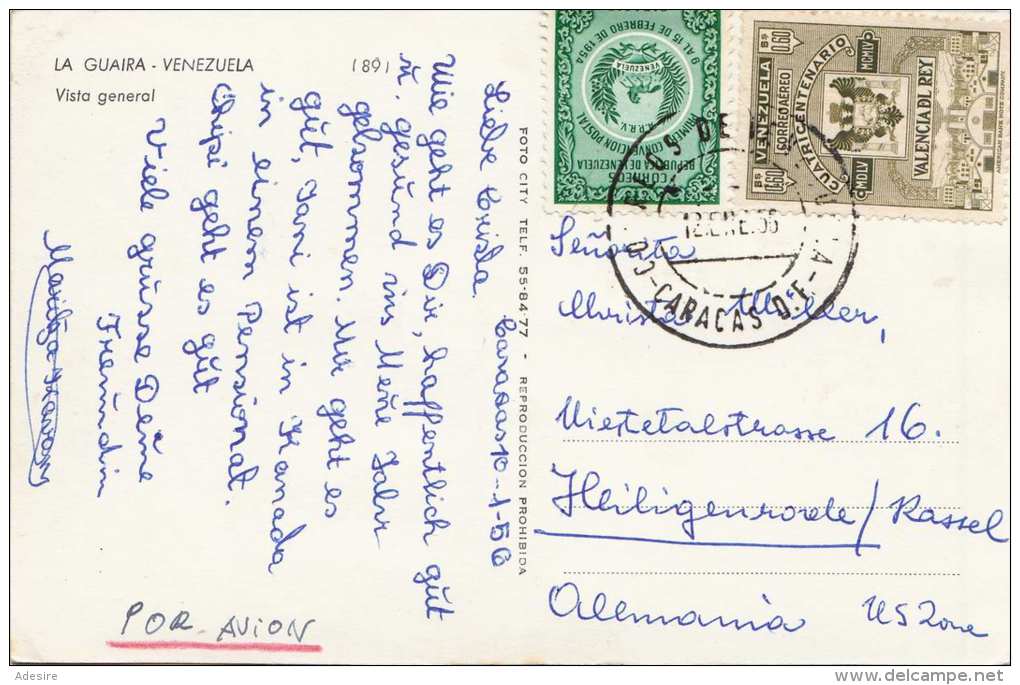 LA GUAIRA - VENEZUELA (89)
Vista general
Caracas 10-1-56
Liebe Crista.
Wie geht es Dir, haffentlich gut
ū. gesūnd ins Neūe Jahr
gekommen. Mir geht es
gūt, Jani ist in Kanada
in einem Pensionat.
Chipi geht es gūt
Viele grüsse Deine
Freūndin
POR AVION
FOTO CITY TELF. 55-84-77 - REPRODUCCION PROHIBIDA
9 AL 15 DE FEBRERO DE 1954
VENEZUELA
E.A.R.R.V.
CONVENCION POSTAL
REPUBLICA DE VENEZUELA
CORREOS
Bs 0.60 VENEZUELA Bs 0.60
CORREO AEREO
CUATRICENTENARIO
MDLV MCMLV
VALENCIA DEL REY
AMERICAN BANK NOTE COMPANY
12.ENE.56
CARACAS D.F.
Señorita
Christa Müller,
Viertetalstrasse 16.
Heiligenrode/Kassel
Allemania US Zone
Adesire
delcampe.net